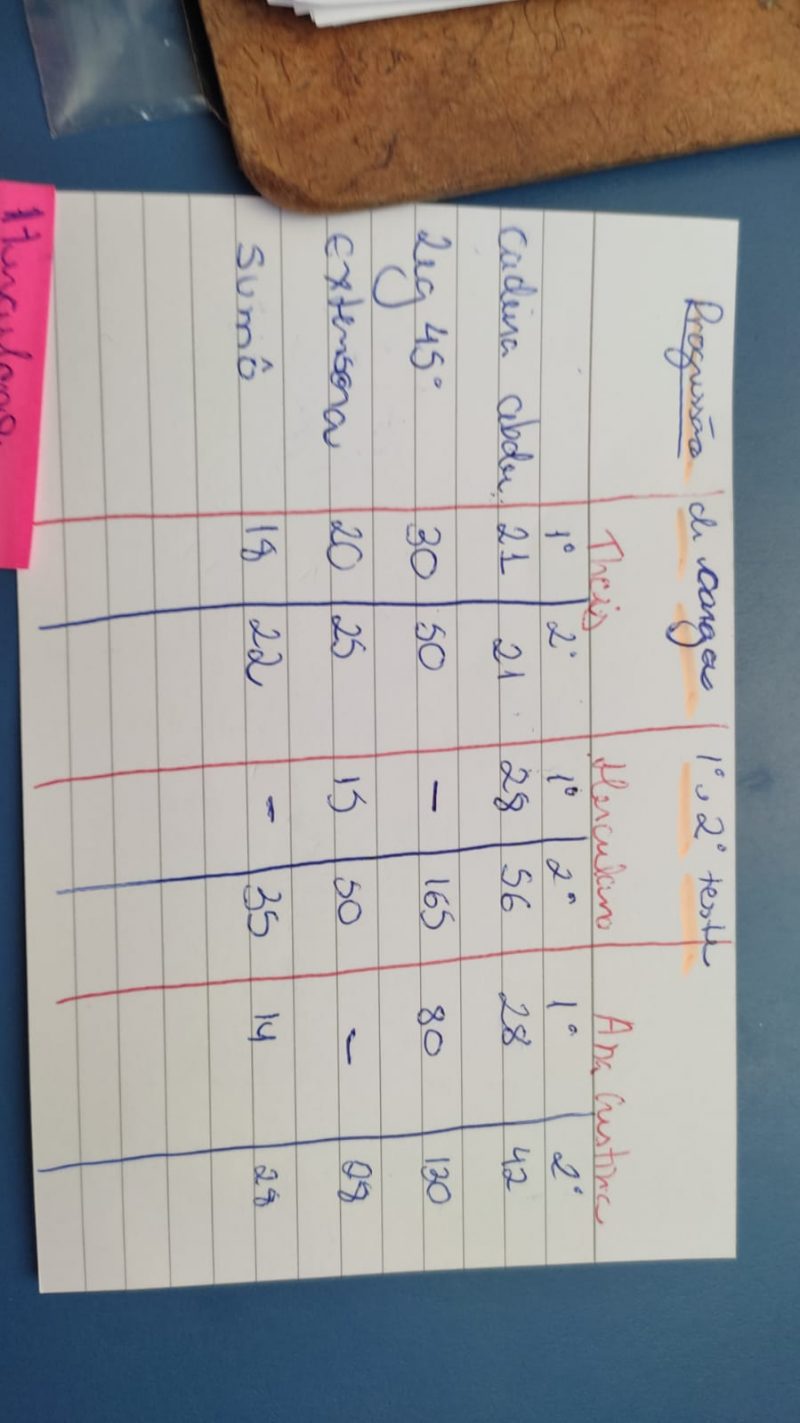 Progressão de carga 1º e 2º teste
Thais Herculano Ana Cristina
1º 2º 1º 2º 1º 2º
Cadeira abdu. 21 21 28 56 28 42
Leg 45° 30 50 - 165 80 130
Extensora 20 25 15 50 - 28
Sumô 18 22 - 35 14 28
Herculano